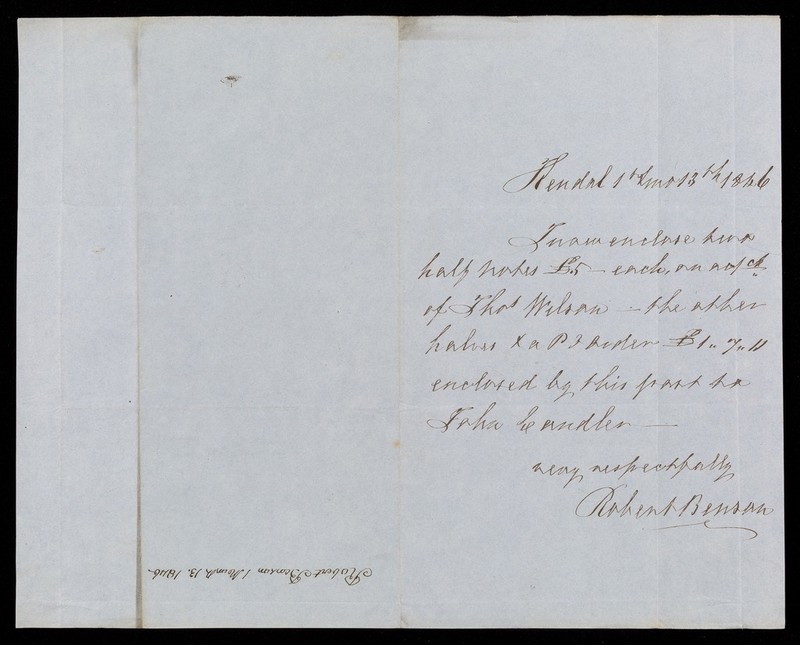 Kendal 1st mo 13th 1846
I now enclose two
half notes £5 — each, on acct
of Thos Wilson — the other
halves & a P O order £1,, 7,, 11
enclosed by this post to
John Candler —
very respectfully
Robert Benson
Robert Benson 1 Month 13. 1846